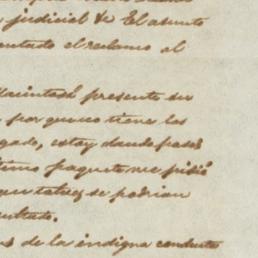 y judicial de El asunto
entado el reclamo al
Macintosh presente su
por que no tiene los
gado, estoy dando pasos
timo paquete me pidió
que tal vez se podrian
sultado.
us de la indigna conducta